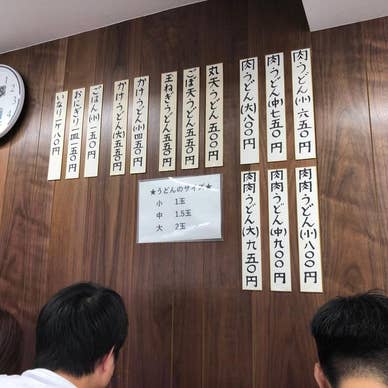 肉うどん(小)六五〇円
肉うどん(中)七五〇円
肉うどん(大)八〇〇円
丸天うどん五〇〇円
ごぼ天うどん五五〇円
玉ねぎうどん五五〇円
かけうどん(小)四五〇円
かけうどん(大)五五〇円
ごはん(小)一五〇円
おにぎり一五〇円
いなり八〇円
肉肉うどん(小)八〇〇円
肉肉うどん(中)九〇〇円
肉肉うどん(大)九五〇円
★うどんのサイズ★
小 1玉
中 1.5玉
大 2玉